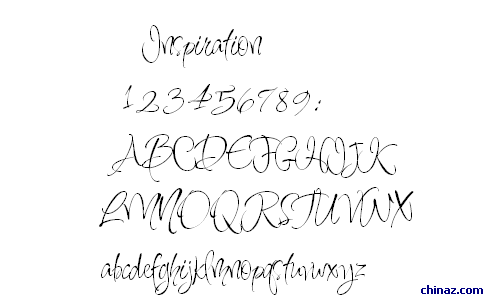 Inspiration
123456789:
ABCDEFGHIJK
LMNOQRSTUVWX
abcdefghijklmnopqrstuvwxyz
chinaz.com